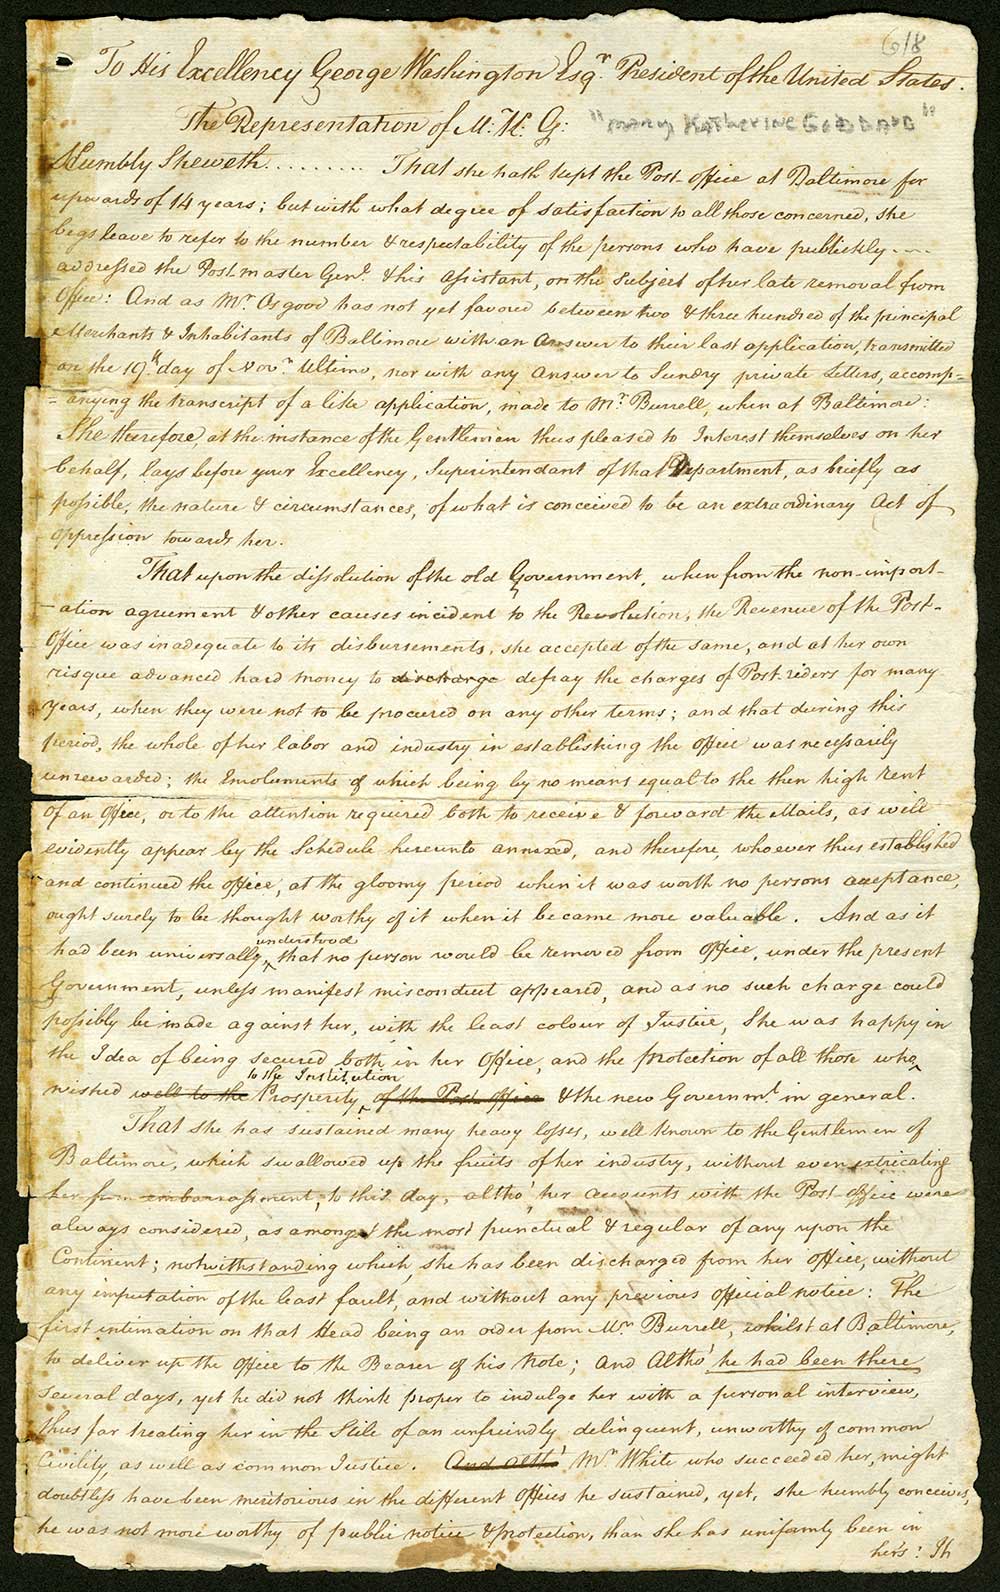 618
To His Excellency George Washington Esqr. President of the United States.
The Representation of M: K: G: "Mary Katherine Goddard"
Humbly Sheweth.......... That she hath kept the Post-office at Baltimore for
upwards of 14 years; but with what degree of satisfaction to all those concerned, she
begs leave to refer to the number & respectability of the persons who have publickly ----
addressed the Postmaster Genl. & his Assistant, on the Subject of her late removal from
Office: And as Mr. Osgood has not yet favored between two & three hundred of the principal
Merchants & Inhabitants of Baltimore with an Answer to their last application, transmitted
on the 19th. day of Novr. Ultimo, nor with any Answer to Sundry private Letters, accomp=
=anying the transcript of a like application, made to Mr. Burrell, when at Baltimore:
She therefore, at the instance of the Gentlemen thus pleased to Interest themselves on her
behalf, lays before your Excellency, Superintendant of that Department, as briefly as
possible, the nature & circumstances, of what is conceived to be an extraordinary Act of
oppression towards her.
That upon the dissolution of the old Government, when from the non-import-
-ation agreement & other causes incident to the Revolution, the Revenue of the Post-
Office was inadequate to its disbursements, she accepted of the same, and at her own
risque advanced hard money to discharge defray the charges of Post-riders for many
Years, when they were not to be procured on any other terms; and that during this
period, the whole of her labor and industry in establishing the office was necessarily
unrewarded; the Emoluments of which being by no means equal to the then high rent
of an Office, or to the attention required both to receive & forward the Mails, as will
evidently appear by the Schedule hereunto annexed, and therefore, whoever thus established
and continued the office, at the gloomy period when it was worth no persons acceptance,
ought surely to be thought worthy of it when it became more valuable. And as it
had been universally understood, that no person would be removed from Office, under the present
Government, unless manifest misconduct appeared, and as no such charge could
possibly be made against her, with the least colour of Justice, She was happy in
the Idea of being secured both in her Office, and the protection of all those who
wished well to the Prosperity to the Institution of the Post office & the new Governmt. in general.
That she has sustained many heavy losses, well known to the Gentlemen of
Baltimore, which swallowed up the fruits of her industry, without even extricating
her from embarrassment, to this day, altho' her accounts with the Post office were
always considered, as amongst the most punctual & regular of any upon the
Continent; notwithstanding which, she has been discharged from her office, without
any imputation of the least fault, and without any previous official notice: The
first intimation on that Head being an order from Mr. Burrell, whilst at Baltimore,
to deliver up the Office to the Bearer of his Note; and Altho' he had been there
several days, yet he did not think proper to indulge her with a personal interview,
thus far treating her in the Stile of an unfriendly delinquent, unworthy of common
Civility, as well as common Justice. And altho' Mr. White who succeeded her, might
doubtless have been meritorious in the different Offices he sustained, yet, she humbly conceives,
he was not more worthy of public notice & protection, than she has uniformly been in
hers: It